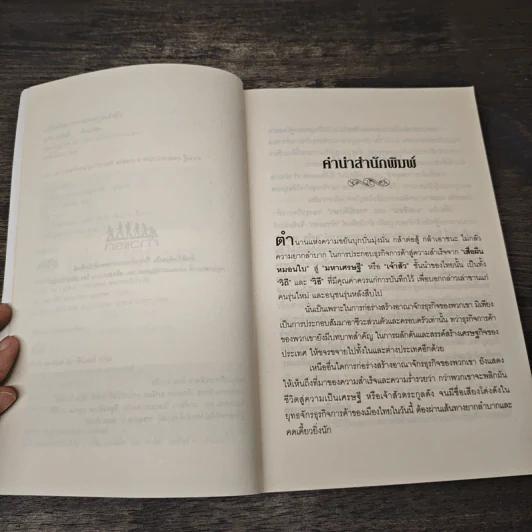 คำนำสำนักพิมพ์
ตำนานแห่งความขยันบุกบั่นมุ่งมั่น กล้าต่อสู้ กล้าเอาชนะ ไม่กลัว
ความยากลำบาก ในการประกอบธุรกิจการค้าสู่ความสำเร็จจาก "เสื่อผืน
หมอนใบ" สู่ "มหาเศรษฐี" หรือ "เจ้าสัว" ชั้นนำของไทยนั้น เป็นทั้ง
"วิถี" และ "วิธี" ที่มีคุณค่าควรแก่การบันทึกไว้ เพื่อบอกกล่าวเล่าขานแก่
คนรุ่นใหม่ และอนุชนรุ่นหลังสืบไป
นั่นเป็นเพราะในการก่อร่างสร้างอาณาจักรธุรกิจของพวกเขา มิเพียง
เป็นการประกอบสัมมาอาชีวะส่วนตัวและครอบครัวเท่านั้น ทว่าธุรกิจการค้า
ของพวกเขายังมีบทบาทสำคัญ ในการผลักดันและสรรค์สร้างเศรษฐกิจของ
ประเทศ ให้ขจรขจายไปทั้งในและต่างประเทศอีกด้วย
เหนืออื่นใดการก่อร่างสร้างอาณาจักรธุรกิจของพวกเขา ยังแสดง
ให้เห็นถึงที่มาของความสำเร็จและความร่ำรวยว่า กว่าพวกเขาจะพลิกผัน
ชีวิตสู่ความเป็นเศรษฐี หรือเจ้าสัวตระกูลดัง จนมีชื่อเสียงโด่งดังใน
ยุทธจักรธุรกิจการค้าของเมืองไทยในวันนี้ ต้องผ่านเส้นทางยากลำบากและ
คดเคี้ยวยิ่งนัก